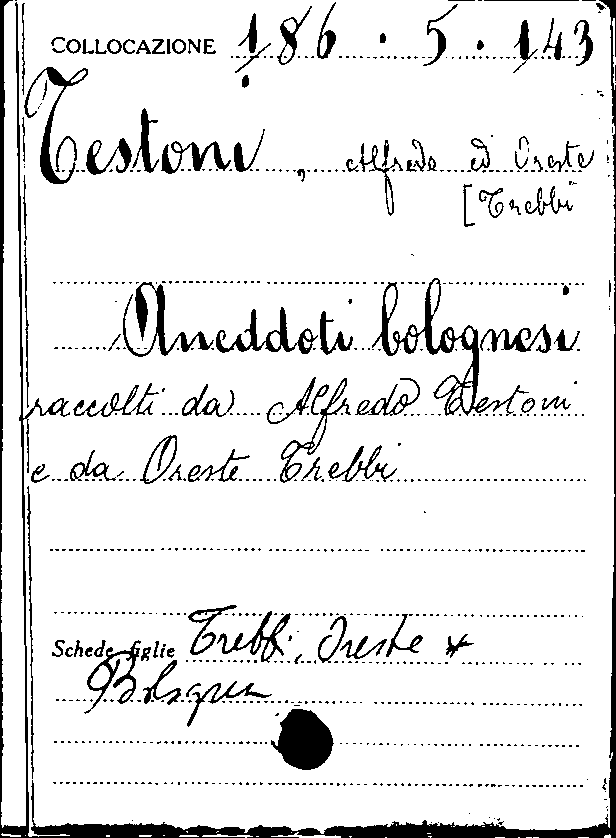 COLLOCAZIONE 186 . 5 . 143
Testoni, Alfredo ed Oreste
[Trebbi
Aneddoti bolognesi
raccolti da Alfredo Testoni
e da Oreste Trebbi
Schede figlie Trebbi, Oreste *
Bologna